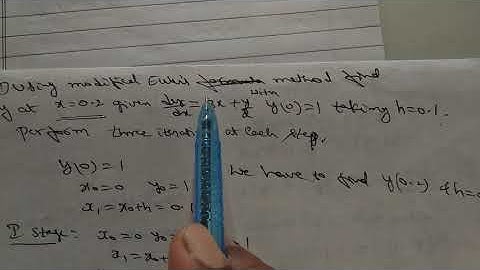 Using modified Euler's method find
y at x=0.2 given dy/dx = 3x + y/2 with y(0)=1 taking h=0.1.
perform three iterations at each step.
y(0)=1
x₀=0 y₀=1 We have to find y(0.2) & h=0
x₁=x₀+h=0.1
I Stage: x₀=0 y₀=
x₁=x₀+ 1